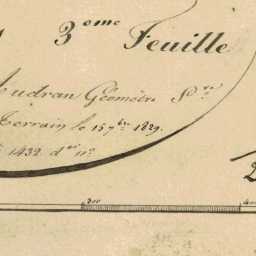 3.eme Feuille
Audran Géomètre
Terrain le 15 7bre 1829.
1432 d
300